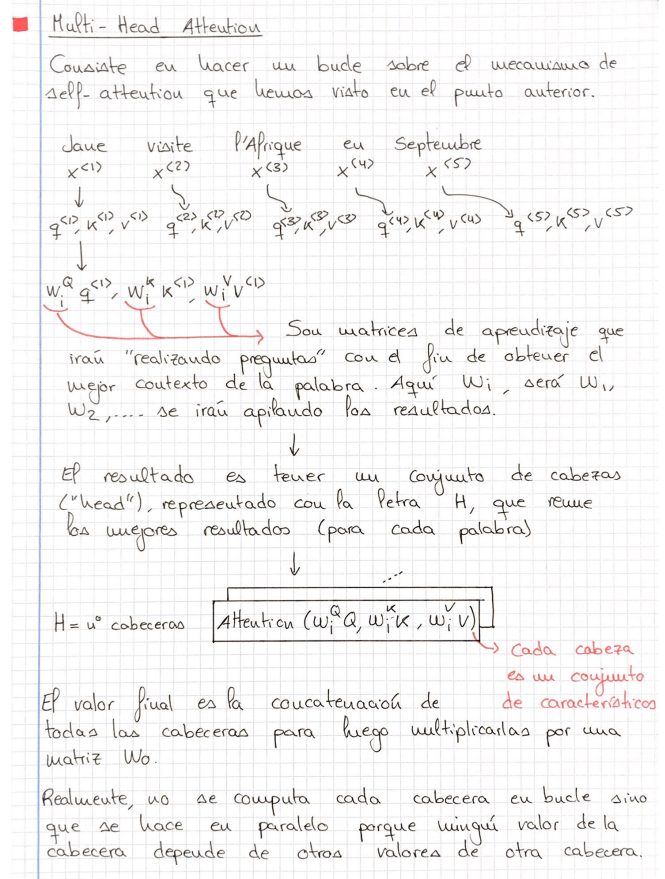 Multi-Head Attention
Consiste en hacer un bucle sobre el mecanismo de
self-attention que hemos visto en el punto anterior.
Jane visite l'Afrique en Septembre
x<1> x<2> x<3> x<4> x<5>
q<1>, K<1>, V<1> q<2>, K<2>, V<2> q<3>, K<3>, V<3> q<4>, K<4>, V<4> q<5>, K<5>, V<5>
W_i^Q q<1>, W_i^K K<1>, W_i^V V<1>
Son matrices de aprendizaje que
irán "realizando preguntas" con el fin de obtener el
mejor contexto de la palabra. Aquí Wi, será W1,
W2,.... se irán apilando los resultados.
El resultado es tener un conjunto de cabezas
("head"), representado con la letra H, que reune
los mejores resultados (para cada palabra)
H = nº cabeceras
Attention (W_i^Q Q, W_i^K K, W_i^V V)
Cada cabeza
es un conjunto
de característicos
El valor final es la concatenación de
todas las cabeceras para luego multiplicarlas por una
matriz Wo.
Realmente, no se computa cada cabecera en bucle sino
que se hace en paralelo porque ningún valor de la
cabecera depende de otros valores de otra cabecera.